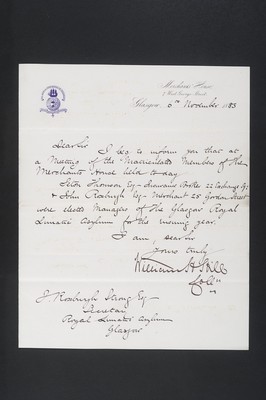 Merchants House,
7 West George Street,
Glasgow, 6th November 1883
Dear Sir
I beg to inform you that at
a Meeting of the Matriculated Members of the
Merchants House held to-day
Thomson Esq - Insurance Broker 22 Exchange Sq:
& John Roxburgh Esq - Merchant 28 Gordon Street
were elected Managers of the Glasgow Royal
Lunatic Asylum for the ensuing year.
I am, dear Sir
yours truly
William H Hill
J Roxburgh Strang Esq
Secretary
Royal Lunatic Asylum
Glasgow